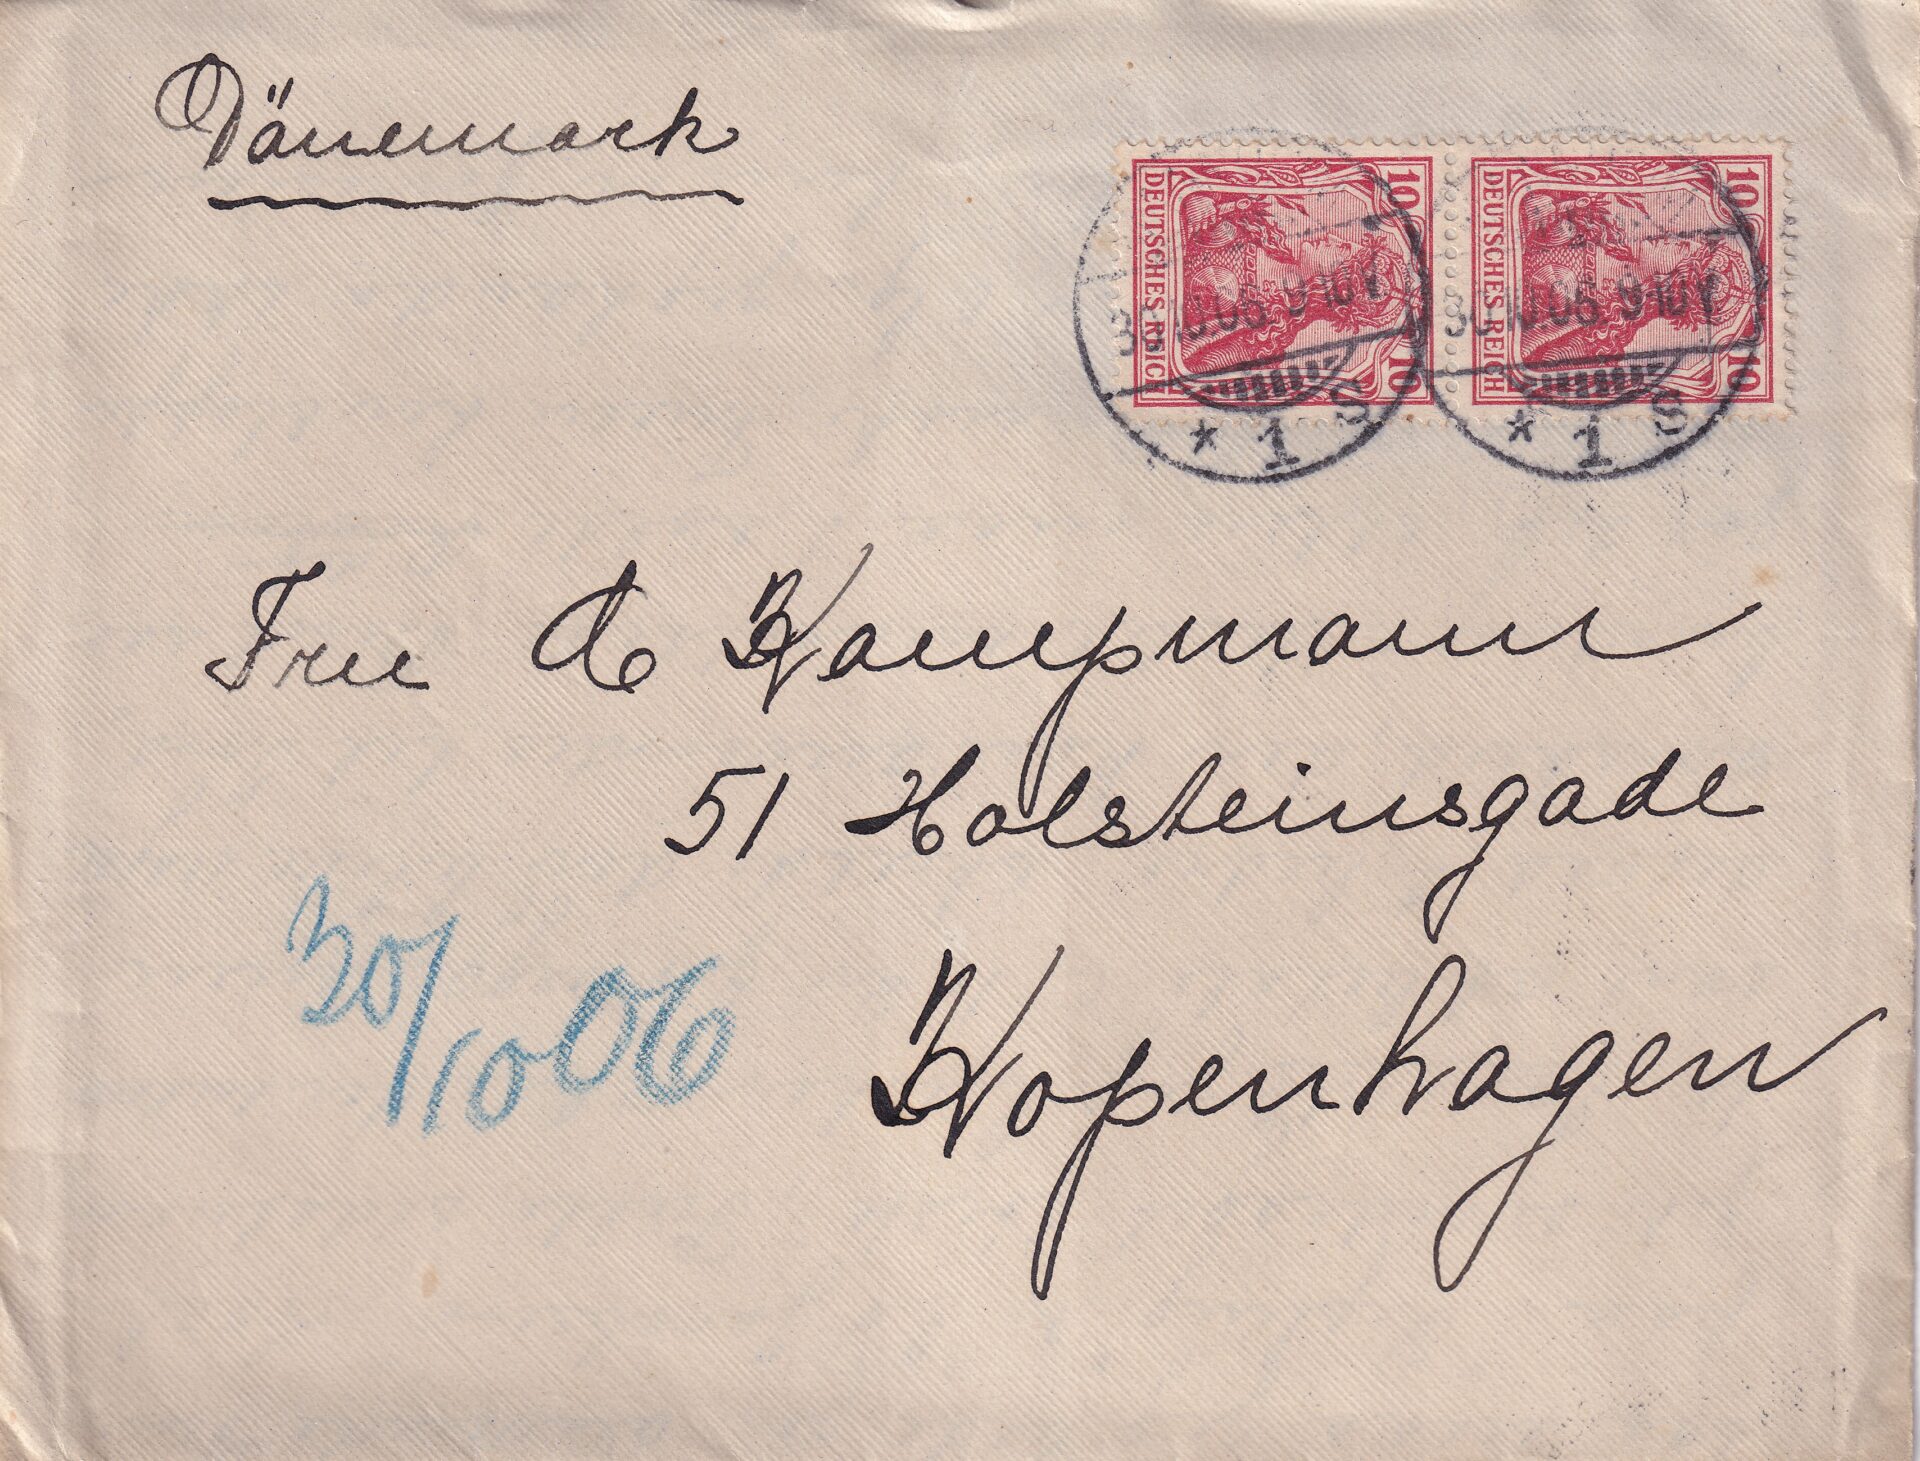 Dänemark
10 10
DEUTSCHES REICH
10 10
DEUTSCHES REICH
30.10.06 9-10V
30.10.06 9-10V
* 1 S
* 1 S
Frue
Kampmann
51 Holsteinsgade
30/10 06
Kopenhagen